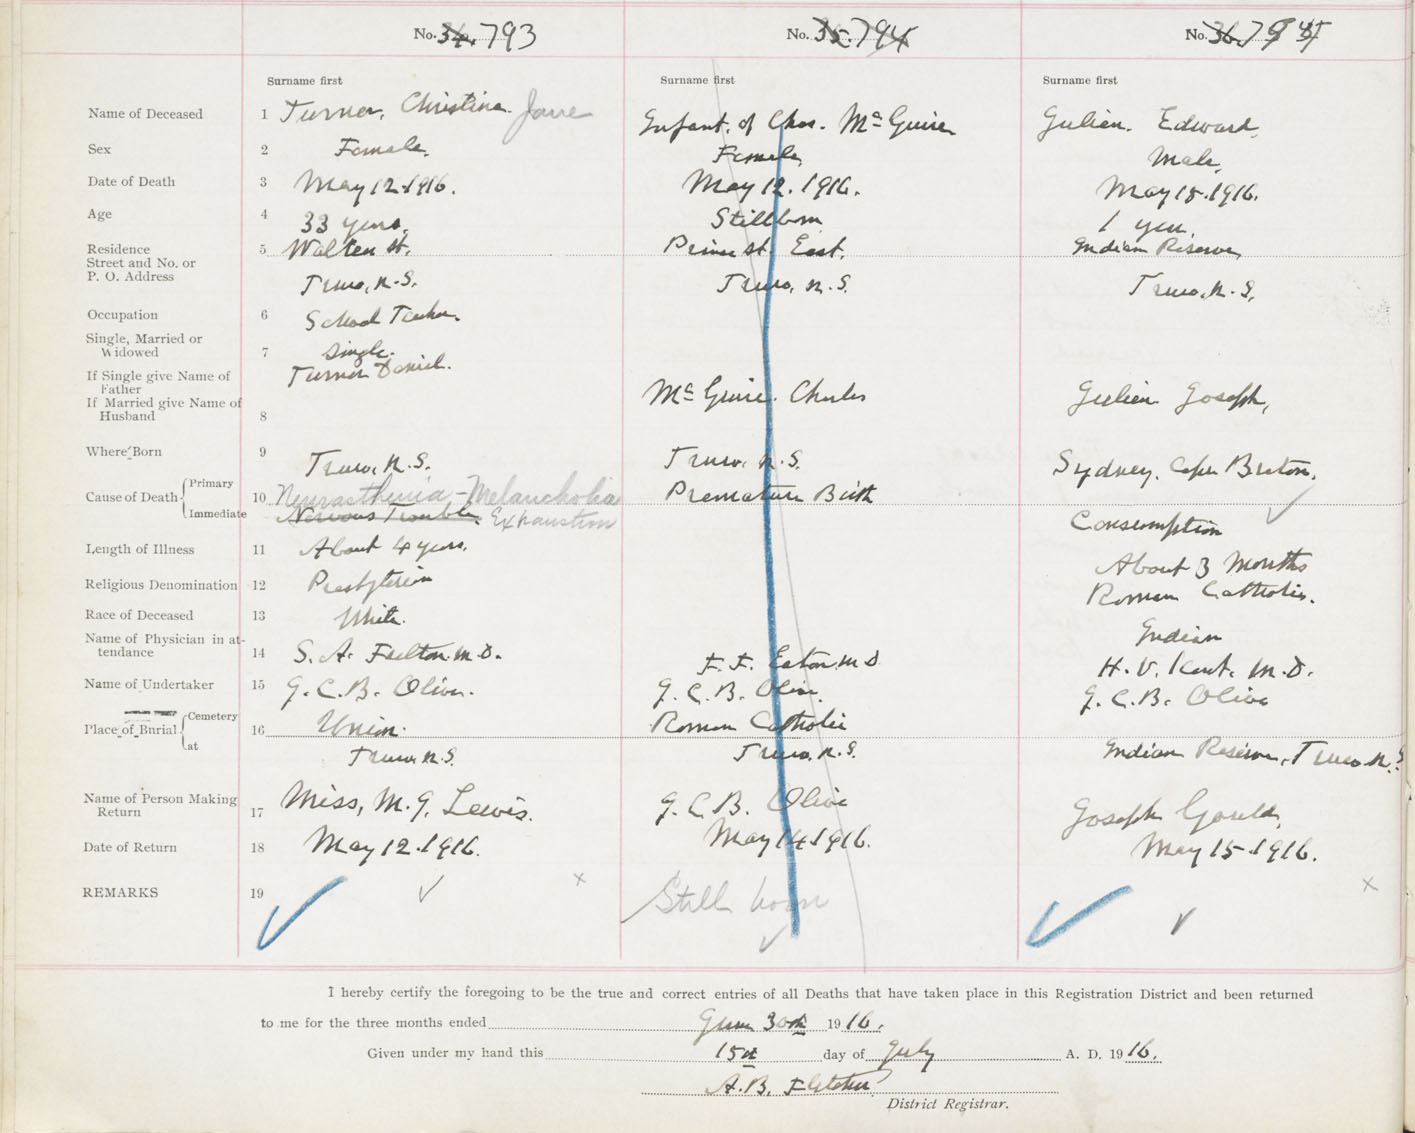 No. 34. 793
No. 35. 794
No. 36. 79
Surname first
Surname first
Surname first
Name of Deceased 1 Turner, Christina Jane
Infant. of Chas. McGuire
Julien. Edward.
Sex 2 Female.
Female
Male.
Date of Death 3 May 12. 1916.
May 12. 1916.
May 15. 1916.
Age 4 33 years.
Stillborn
1 year.
Residence
Street and No. or
P. O. Address
5 Walker St.
Truro, N.S.
Prince st. East.
Truro, N.S.
Indian Reserve
Truro, N.S.
Occupation 6 School Teacher.
Single, Married or
Widowed 7 Single.
If Single give Name of
Father
If Married give Name of
Husband 8
Turner Daniel.
McGuire. Charles
Julien Joseph,
Where Born 9 Truro, N.S.
Truro, N.S.
Sydney, Cape Breton.
Cause of Death { Primary
Immediate
10 Neurasthenia - Melancholia
Nervous Trouble. Exhaustion
Premature Birth
Consumption
Length of Illness 11 About 4 years.
About 3 Months
Religious Denomination 12 Presbyterian
Roman Catholic.
Race of Deceased 13 White.
Indian
Name of Physician in at-
tendance 14 S. A. Fulton. M.D.
F. F. Eaton. M.D
H. V. Kent. M.D.
Name of Undertaker 15 G. C. B. Olive.
G. C. B. Olive.
G. C. B. Olive
Place of Burial { Cemetery
at
16 Union.
Truro. N.S.
Roman Catholic
Truro. N.S.
Indian Reserve, Truro. N.S
Name of Person Making
Return 17 Miss, M. G. Lewis.
G. C. B. Olive
Joseph Gould,
Date of Return 18 May 12. 1916.
May 14. 1916.
May 15. 1916.
REMARKS 19
Still born
I hereby certify the foregoing to be the true and correct entries of all Deaths that have taken place in this Registration District and been returned
to me for the three months ended June 30th 1916.
Given under my hand this 15th day of July A. D. 1916.
A.B. Fletcher
District Registrar.